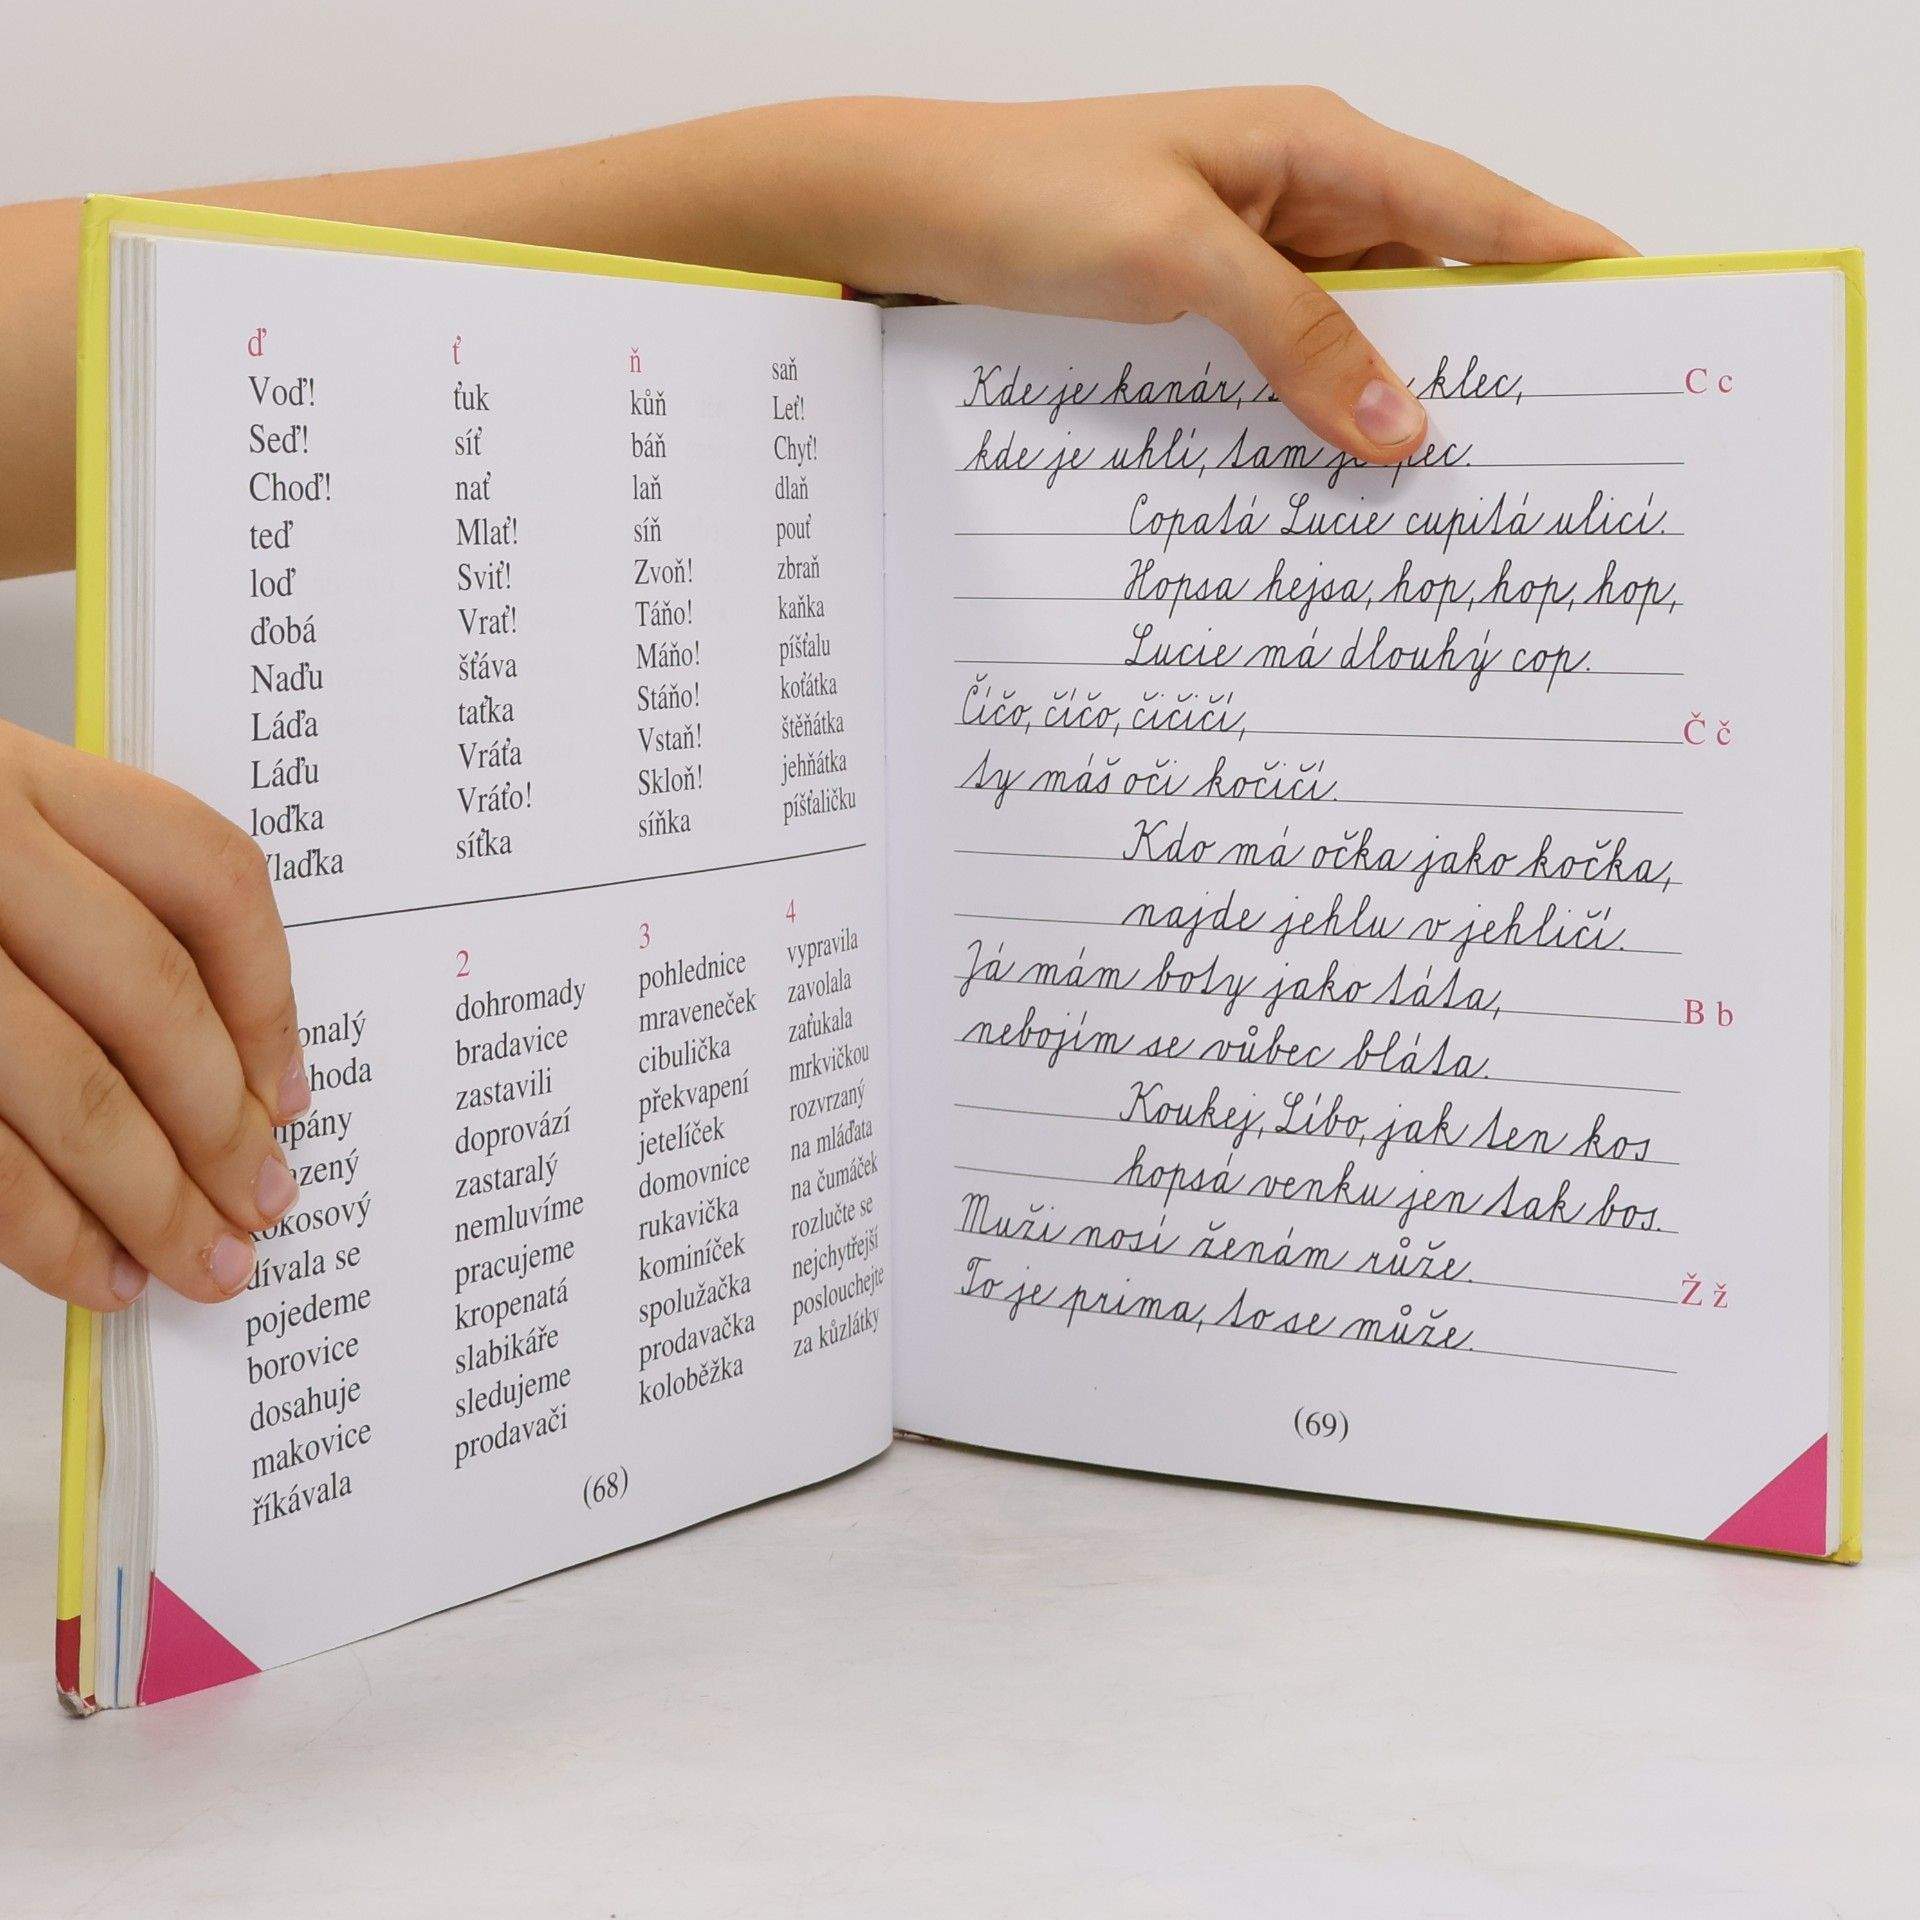 ď
Voď!
Seď!
Choď!
teď
loď
ďobá
Naďu
Láďa
Láďu
loďka
laďka
ť
ťuk
síť
nať
Mlať!
Sviť!
Vrať!
šťáva
taťka
Vráťa
Vráťo!
síťka
ň
kůň
báň
laň
síň
Zvoň!
Táňo!
Máňo!
Stáňo!
Vstaň!
Skloň!
síňka
saň
Leť!
Chyť!
dlaň
pouť
zbraň
kaňka
píšťalu
koťátka
štěňátka
jehňátka
píšťaličku
onalý
hoda
pány
zený
kokosový
dívala se
pojedeme
borovice
dosahuje
makovice
říkávala
2
dohromady
bradavice
zastavili
doprovází
zastaralý
nemluvíme
pracujeme
kropenatá
slabikáře
sledujeme
prodavači
3
pohlednice
mraveneček
cibulička
překvapení
jetelíček
domovnice
rukavička
kominíček
spolužačka
prodavačka
koloběžka
4
vypravila
zavolala
zaťukala
mrkvičkou
rozvrzaný
na mláďata
na čumáček
rozlučte se
nejchytřejší
poslouchejte
za kůzlátky
(68)
Kde je kanár, klec, C c
kde je uhlí, tam pec.
Copatá Lucie cupitá ulicí.
Hopsa hejsa, hop, hop, hop,
Lucie má dlouhý cop.
Číčo, číčo, čičičí, Č č
ty máš oči kočičí.
Kdo má očka jako kočka,
najde jehlu v jehličí.
Já mám boty jako táta, B b
nebojím se vůbec bláta.
Koukej, Líbo, jak ten kos
hopsá venku jen tak bos.
Muži nosí ženám růže. Ž ž
To je prima, to se může.
(69)